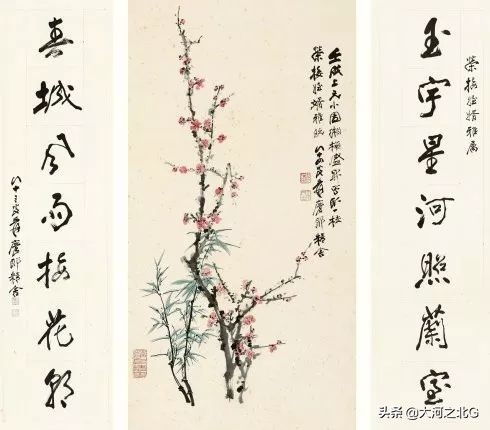 玉宇星河照蘭室
姪婿雅屬
壬戌上元小園梅盛開寫
姪婿雅玩 八十四叟爰 摩耶精舍
春城風雨梅花
八十三叟爰 摩耶精舍
头条 @大河之北G